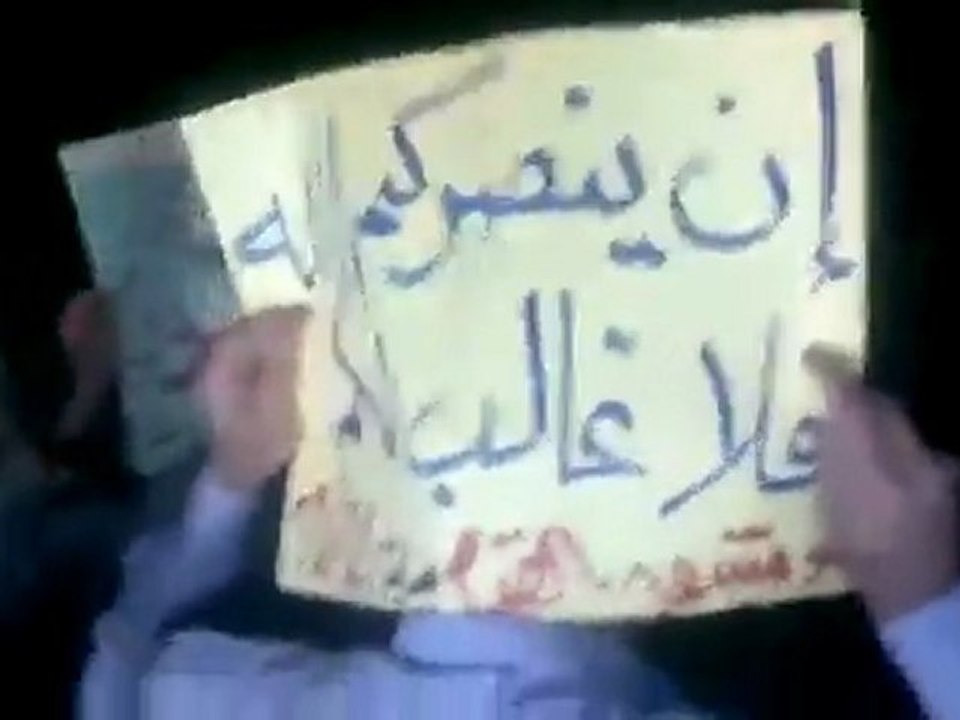 إن ينصركم الله
فلا غالب لكم
دمشق